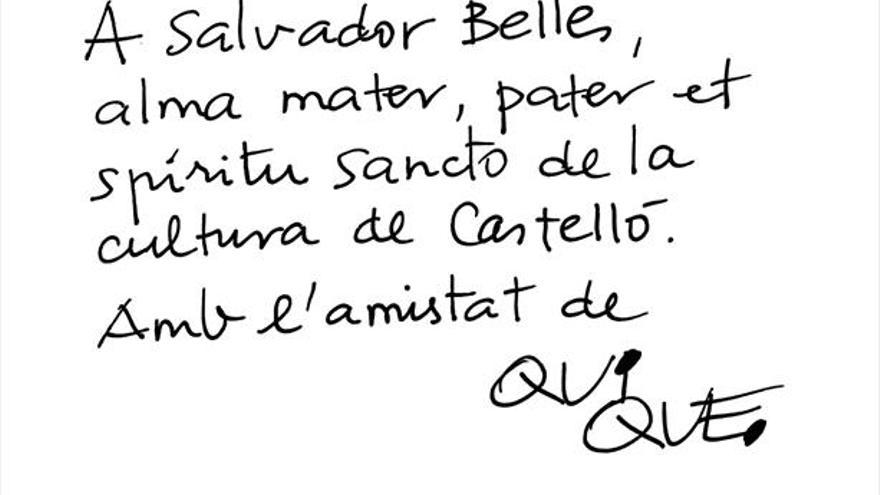 A Salvador Belles,
alma mater, pater et
spíritu sancto de la
cultura de Castelló.
Amb l'amistat de
QUI
QUE.